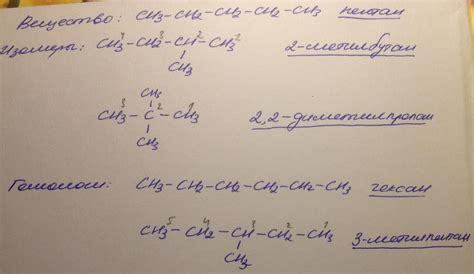 Вещество: CH3-CH2-CH2-CH2-CH3 пентан
Изомеры: CH3-CH2-CH-CH3 2-метилбутан
4 3 2 2
CH3
CH3
3 2 1
CH3-C-CH3 2,2-диметилпропан
CH3
Гомологи: CH3-CH2-CH2-CH2-CH2-CH3 гексан
5 4 3 2 1
CH3-CH2-CH-CH2-CH3 3-метилпентан
CH3